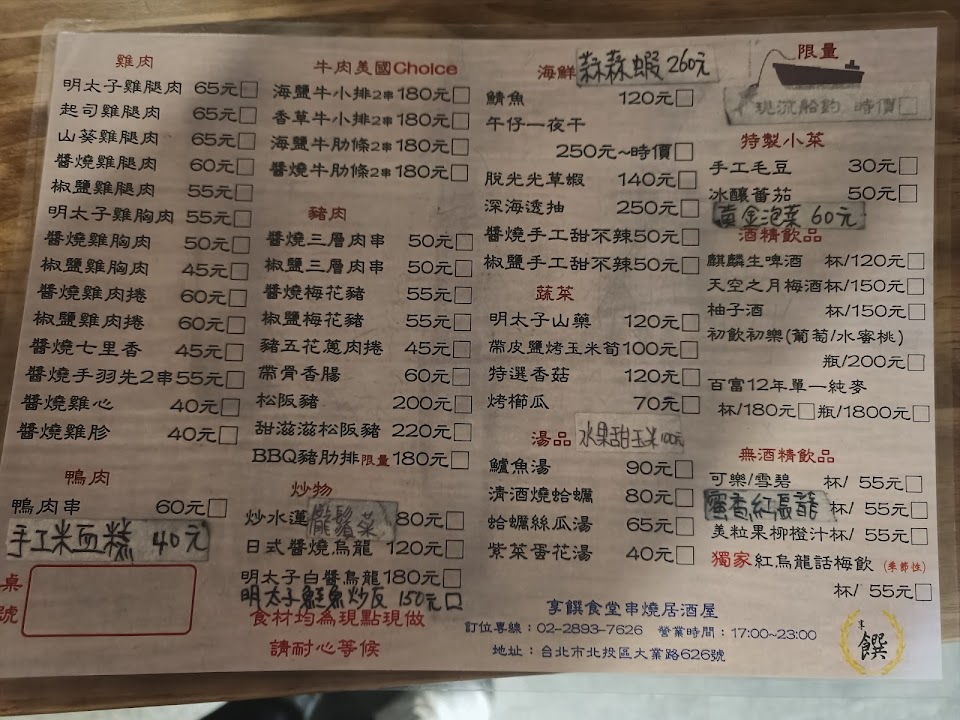 雞肉
明太子雞腿肉 65元
起司雞腿肉 65元
山葵雞腿肉 65元
醬燒雞腿肉 60元
椒鹽雞腿肉 55元
明太子雞胸肉 55元
醬燒雞胸肉 50元
椒鹽雞胸肉 45元
醬燒雞肉捲 60元
椒鹽雞肉捲 60元
醬燒七里香 45元
醬燒手羽先2串 55元
醬燒雞心 40元
醬燒雞胗 40元
鴨肉
鴨肉串 60元
手工米血糕 40元
桌號
牛肉美國Choice
海鹽牛小排2串 180元
香草牛小排2串 180元
海鹽牛肋條2串 180元
醬燒牛肋條2串 180元
豬肉
醬燒三層肉串 50元
椒鹽三層肉串 50元
醬燒梅花豬 55元
椒鹽梅花豬 55元
豬五花蔥肉捲 45元
帶骨香腸 60元
松阪豬 200元
甜滋滋松阪豬 220元
BBQ豬肋排限量 180元
炒物
炒水蓮 龍鬚菜 80元
日式醬燒烏龍 120元
明太子白醬烏龍 180元
明太子鮭魚炒飯 150元
食材均為現點現做
請耐心等候
海鮮 蒜蒜蝦 260元
鯖魚 120元
午仔一夜干
250元~時價
脫光光草蝦 140元
深海透抽 250元
醬燒手工甜不辣 50元
椒鹽手工甜不辣 50元
蔬菜
明太子山藥 120元
帶皮鹽烤玉米筍 100元
特選香菇 120元
烤櫛瓜 70元
湯品 水果甜玉米 100元
鱸魚湯 90元
清酒燒蛤蠣 80元
蛤蠣絲瓜湯 65元
紫菜蛋花湯 40元
限量
現流船釣 時價
特製小菜
手工毛豆 30元
冰釀蕃茄 50元
黃金泡菜 60元
酒精飲品
麒麟生啤酒 杯/120元
天空之月梅酒 杯/150元
柚子酒 杯/150元
初飲初樂(葡萄/水蜜桃)
瓶/200元
百富12年單一純麥
杯/180元 瓶/1800元
無酒精飲品
可樂/雪碧 杯/ 55元
蜜香紅烏龍 杯/ 55元
美粒果柳橙汁 杯/ 55元
獨家紅烏龍話梅飲 (季節性)
杯/ 55元
享饌食堂串燒居酒屋
訂位專線：02-2893-7626 營業時間：17:00~23:00
地址：台北市北投區大業路626號
饌